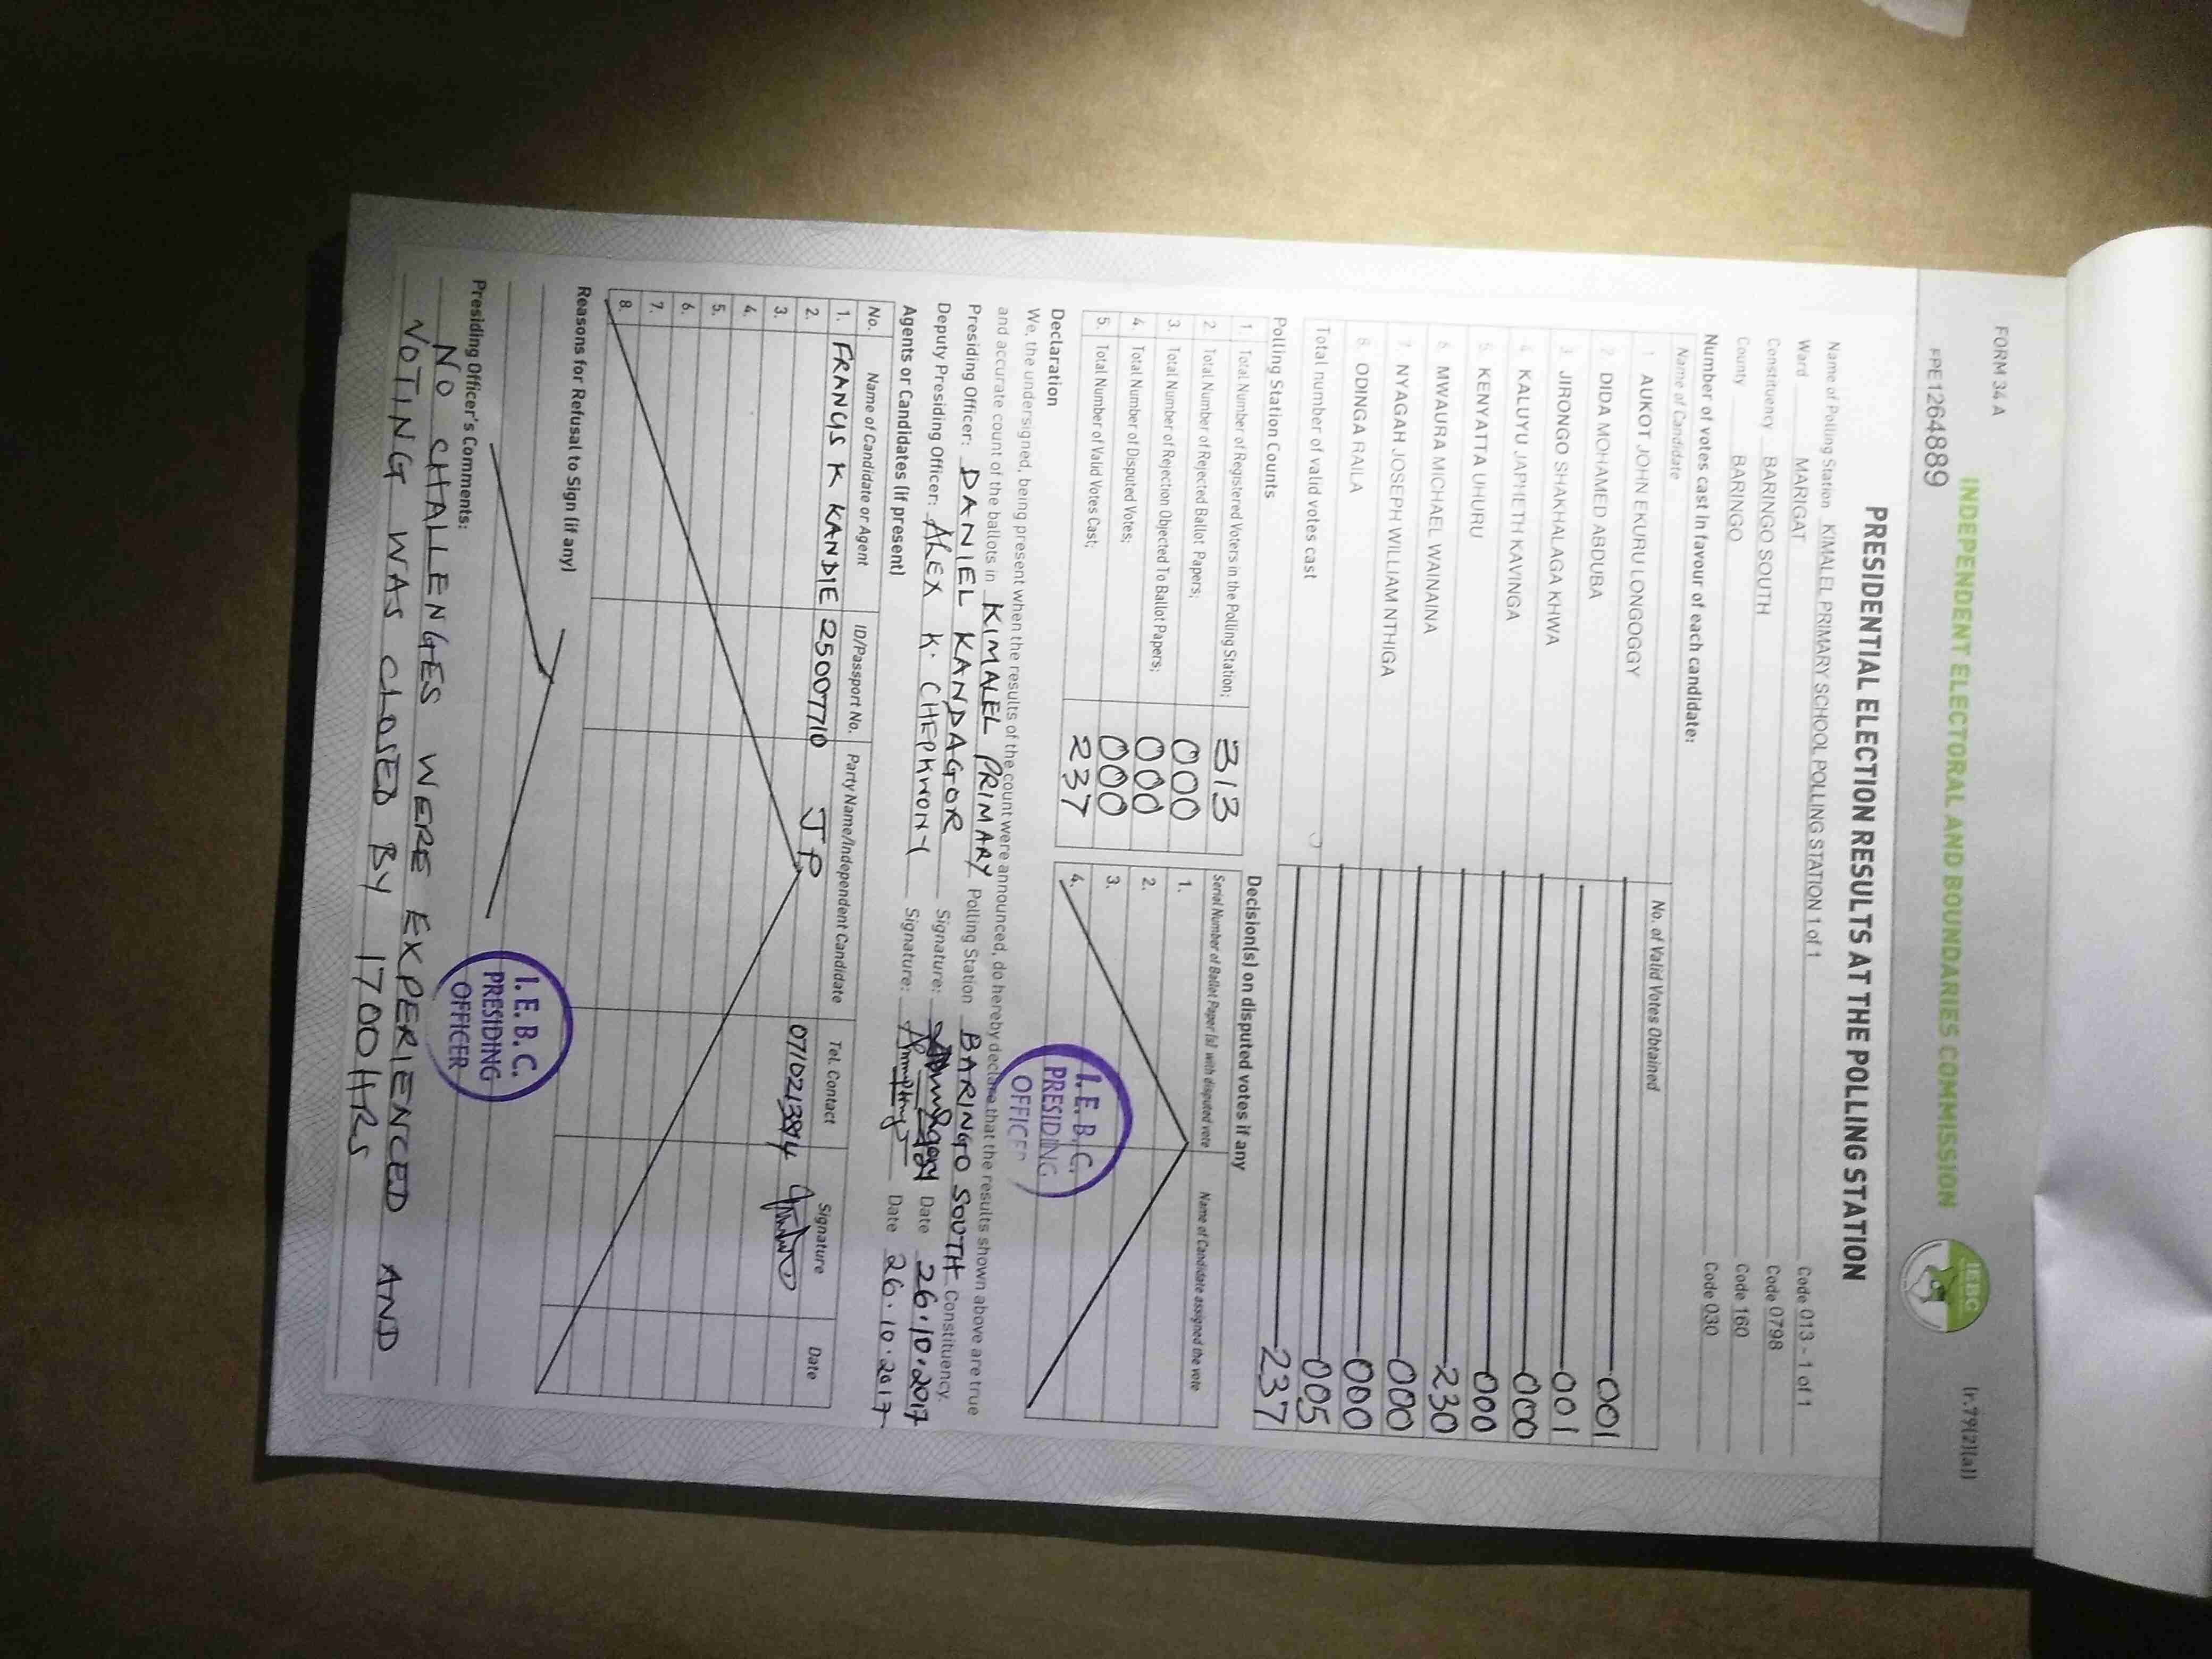 FORM 34 A
(r.79(2)(a))
INDEPENDENT ELECTORAL AND BOUNDARIES COMMISSION
IEBC
FPE1264889
PRESIDENTIAL ELECTION RESULTS AT THE POLLING STATION
Name of Polling Station KIMALEL PRIMARY SCHOOL POLLING STATION 1 of 1 Code 013 - 1 of 1
Ward MARIGAT Code 0798
Constituency BARINGO SOUTH Code 160
County BARINGO Code 030
Number of votes cast in favour of each candidate:
Name of Candidate No. of Valid Votes Obtained
1 AUKOT JOHN EKURU LONGOGGY 001
2 DIDA MOHAMED ABDUBA 001
3 JIRONGO SHAKHALAGA KHWA 000
4 KALUYU JAPHETH KAVINGA 000
5 KENYATTA UHURU 230
6 MWAURA MICHAEL WAINAINA 000
7 NYAGAH JOSEPH WILLIAM NTHIGA 000
8. ODINGA RAILA 005
Total number of valid votes cast 237
Polling Station Counts
1 Total Number of Registered Voters in the Polling Station; 313
2. Total Number of Rejected Ballot Papers; 000
3. Total Number of Rejection Objected To Ballot Papers; 000
4. Total Number of Disputed Votes; 000
5. Total Number of Valid Votes Cast; 237
Decision(s) on disputed votes if any
Serial Number of Ballot Paper (s) with disputed vote Name of Candidate assigned the vote
1.
2.
3.
4.
I.E.B.C.
PRESIDING
OFFICER
Declaration
We, the undersigned, being present when the results of the count were announced, do hereby declare that the results shown above are true
and accurate count of the ballots in KIMALEL PRIMARY Polling Station BARINGO SOUTH Constituency.
Presiding Officer: DANIEL KANDAGOR Signature: Date 26.10.2017
Deputy Presiding Officer: ALEX K. CHEPKWONY Signature: Date 26.10.2017
Agents or Candidates (if present)
No. Name of Candidate or Agent ID/Passport No. Party Name/Independent Candidate Tel. Contact Signature Date
1. FRANCIS K KANDIE 25007710 JP
2.
3.
4.
5.
6.
7.
8.
Reasons for Refusal to Sign (if any)
I.E.B.C.
PRESIDING
OFFICER
Presiding Officer's Comments:
NO CHALLENGES WERE EXPERIENCED AND
VOTING WAS CLOSED BY 1700HRS